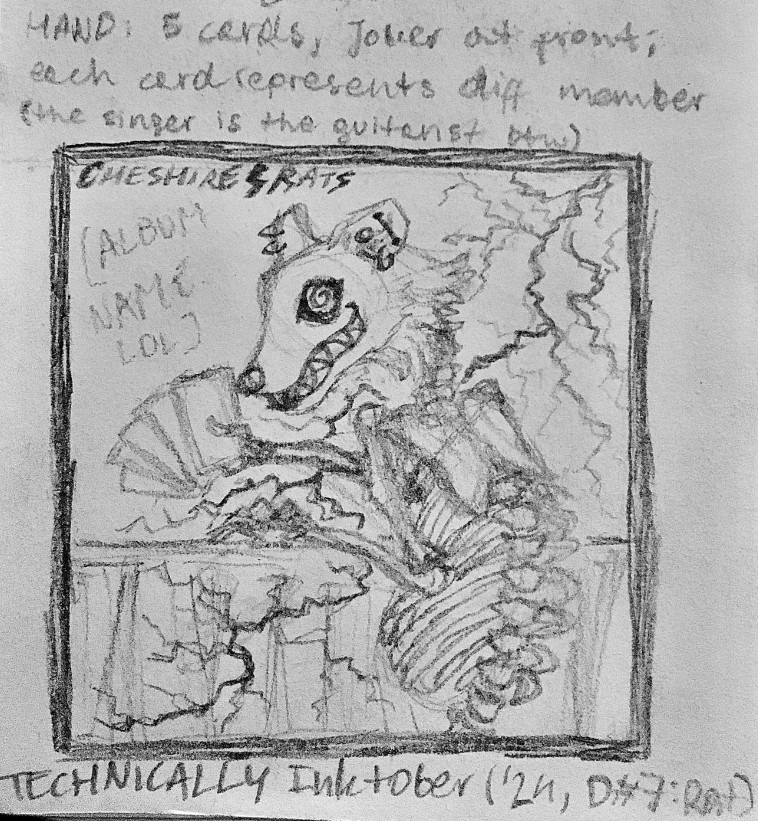 HAND: 5 cards, Joker at front;
each card represents diff member
(the singer is the guitarist btw)
CHESHIRE RATS
[ALBUM
NAME
LOL]
TECHNICALLY Inktober ('24, D#7: Rat)